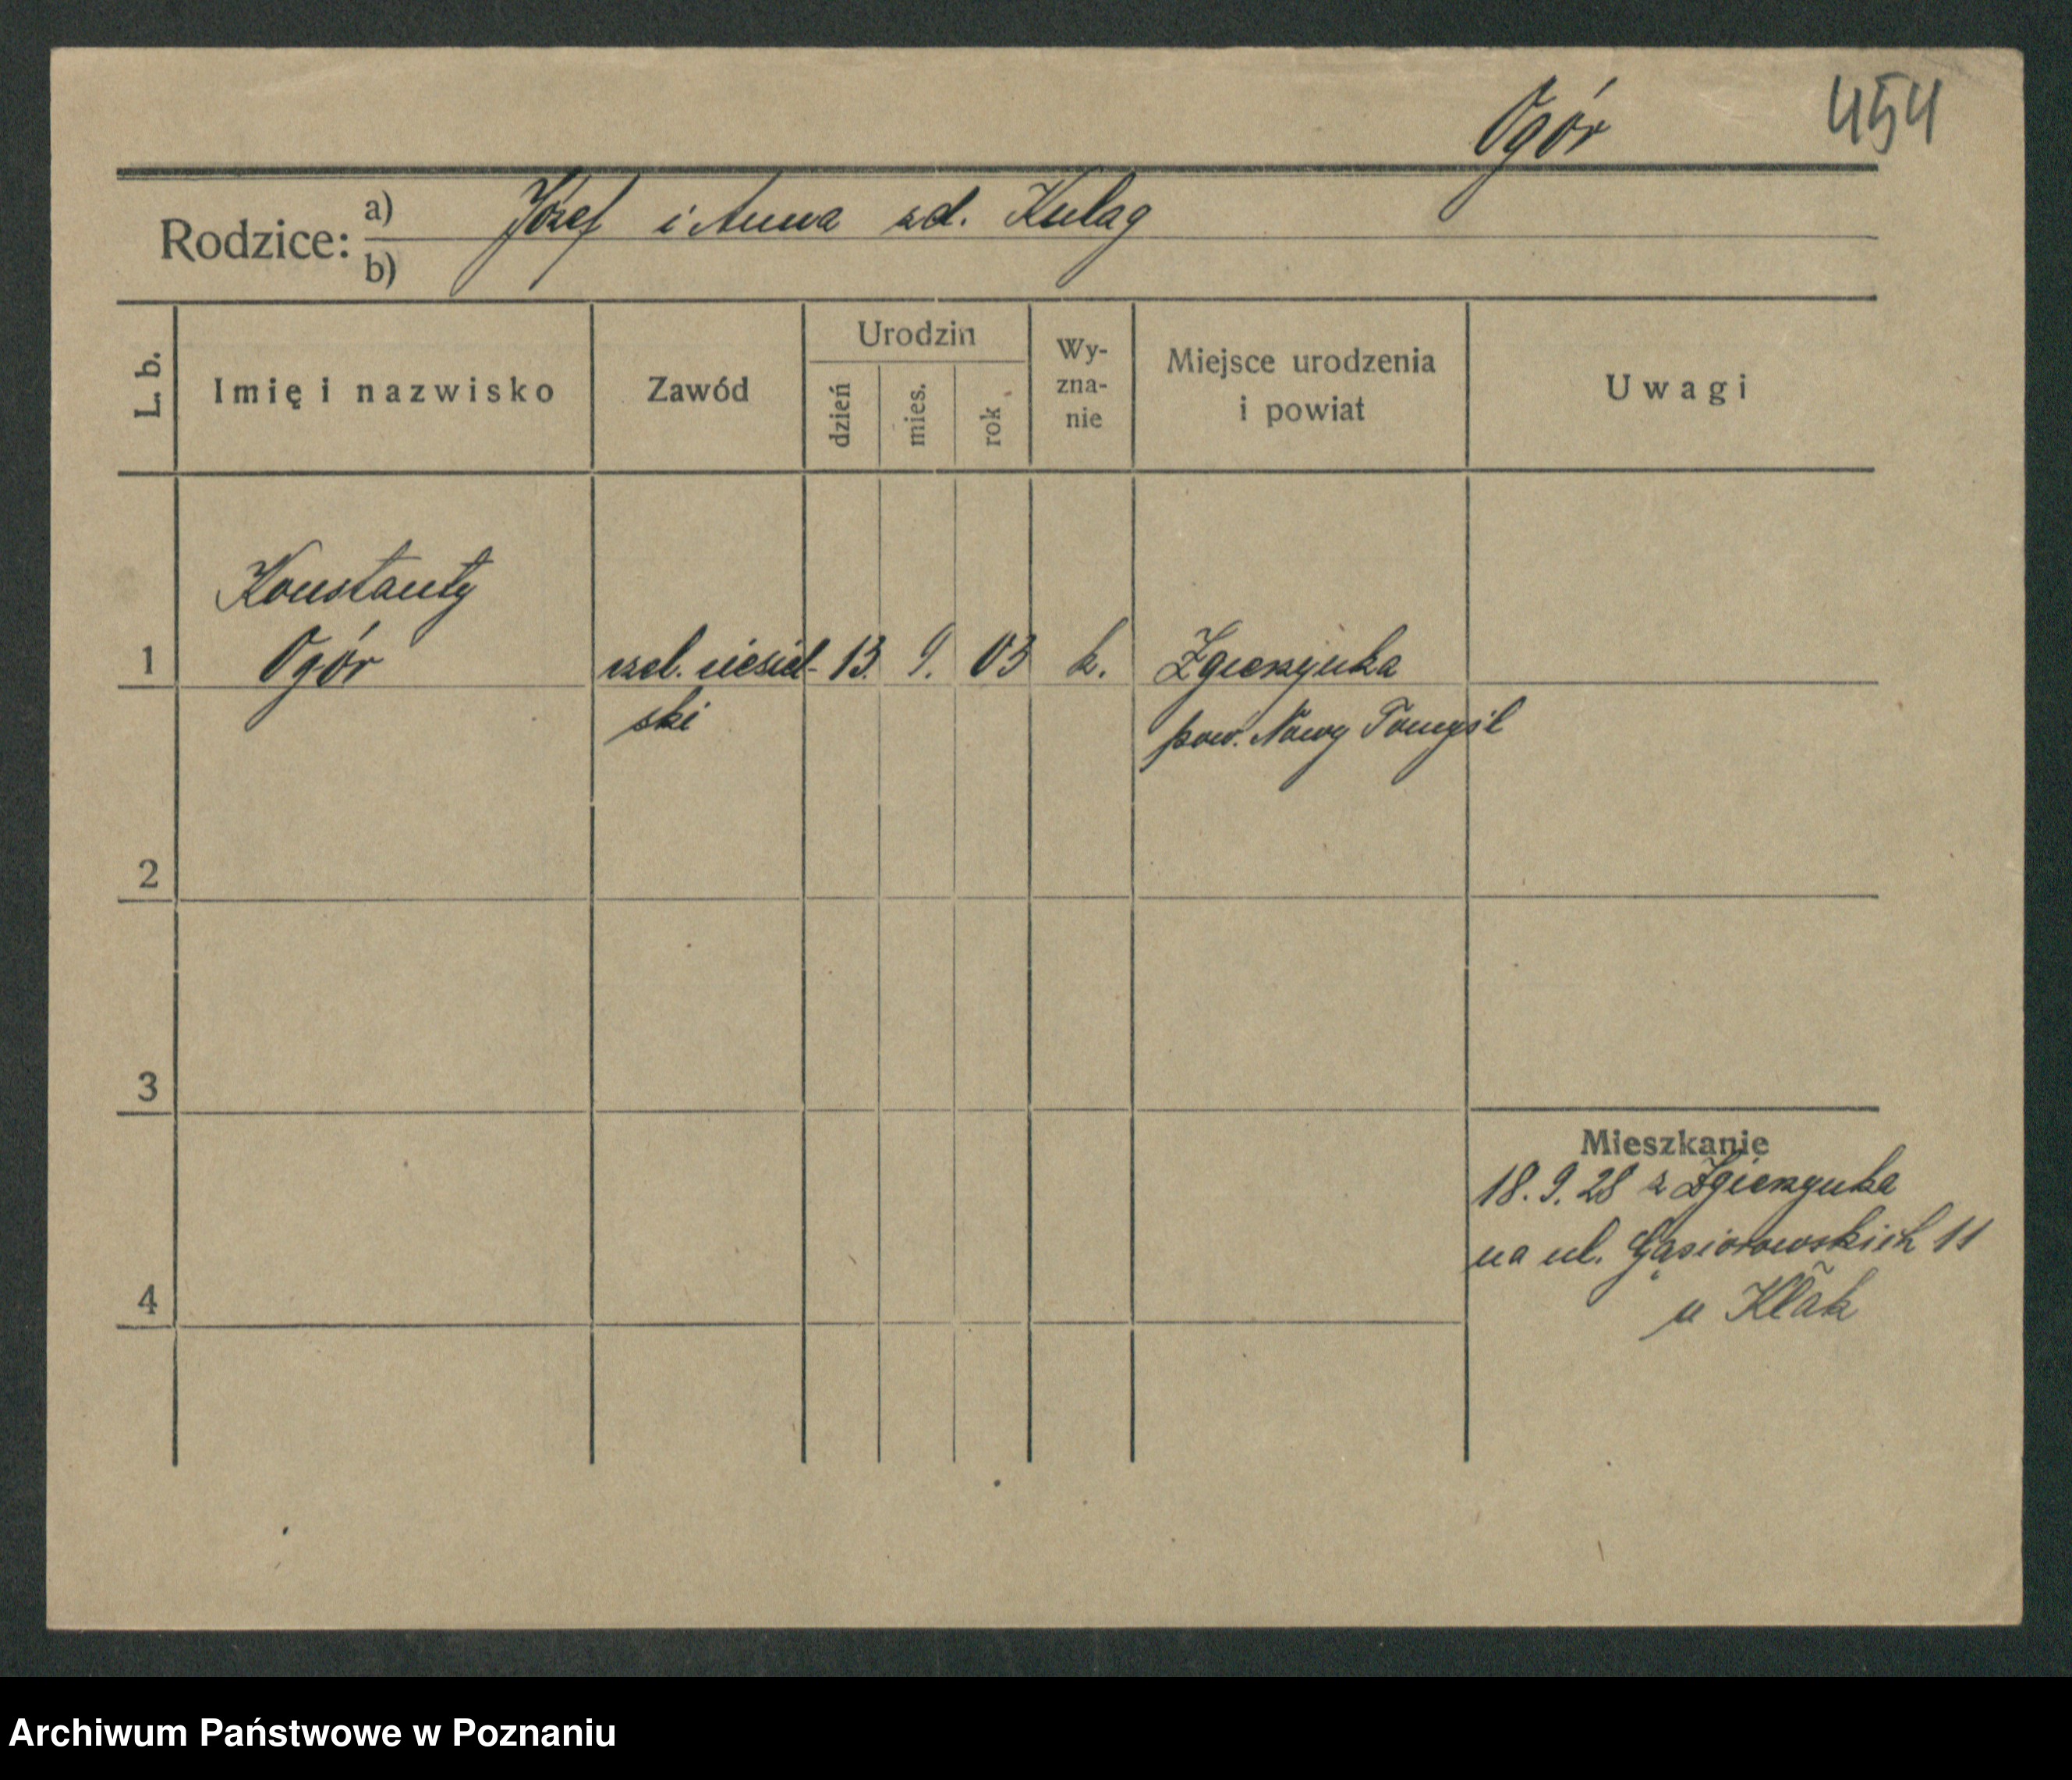 Ogór 454
Rodzice: a) Józef i Anna zd. Kulag
b)
L. b. Imię i nazwisko Zawód Urodzin dzień mies. rok Wy-zna-nie Miejsce urodzenia i powiat Uwagi
Konstanty
1 Ogór czel. ciesiel- 13. 9. 03 k. Zgierzynka
ski pow. Nowy Tomyśl
2
3
Mieszkanie
18. 9. 28 z Zgierzynka
na ul. Gąsiorowskich 11
4 u Klak
Archiwum Państwowe w Poznaniu